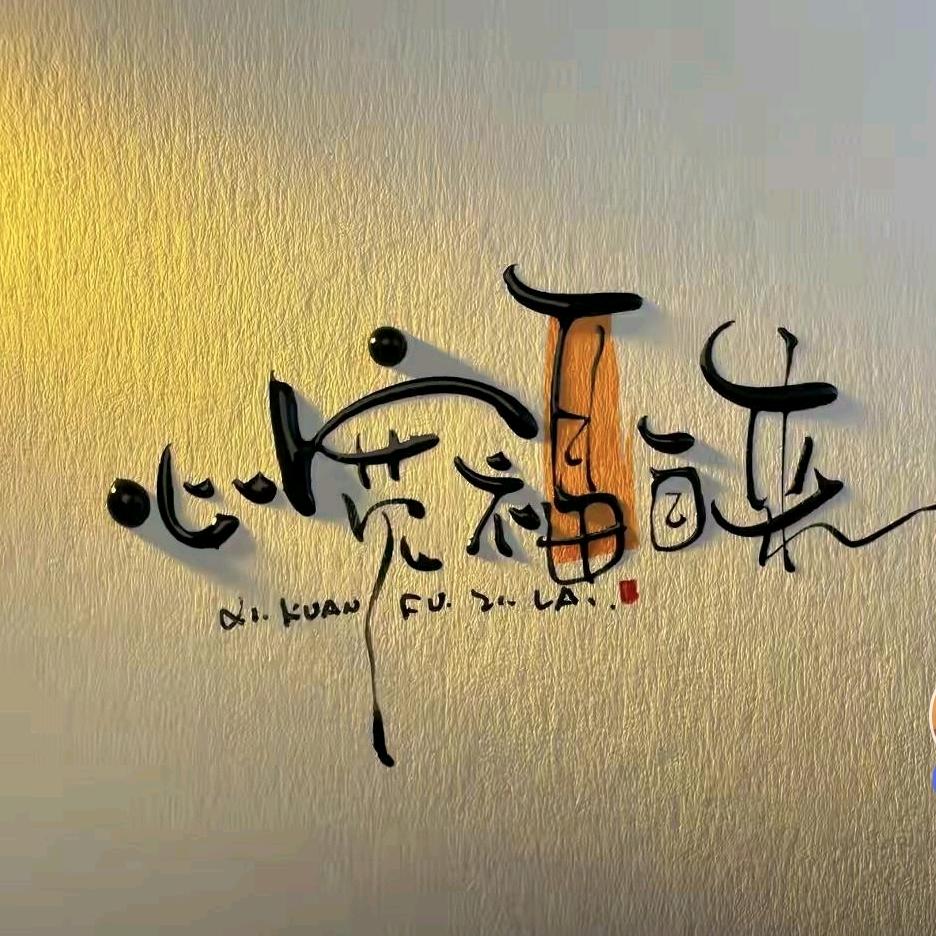 心宽福自来
XI. KUAN FU. ZI. LA..